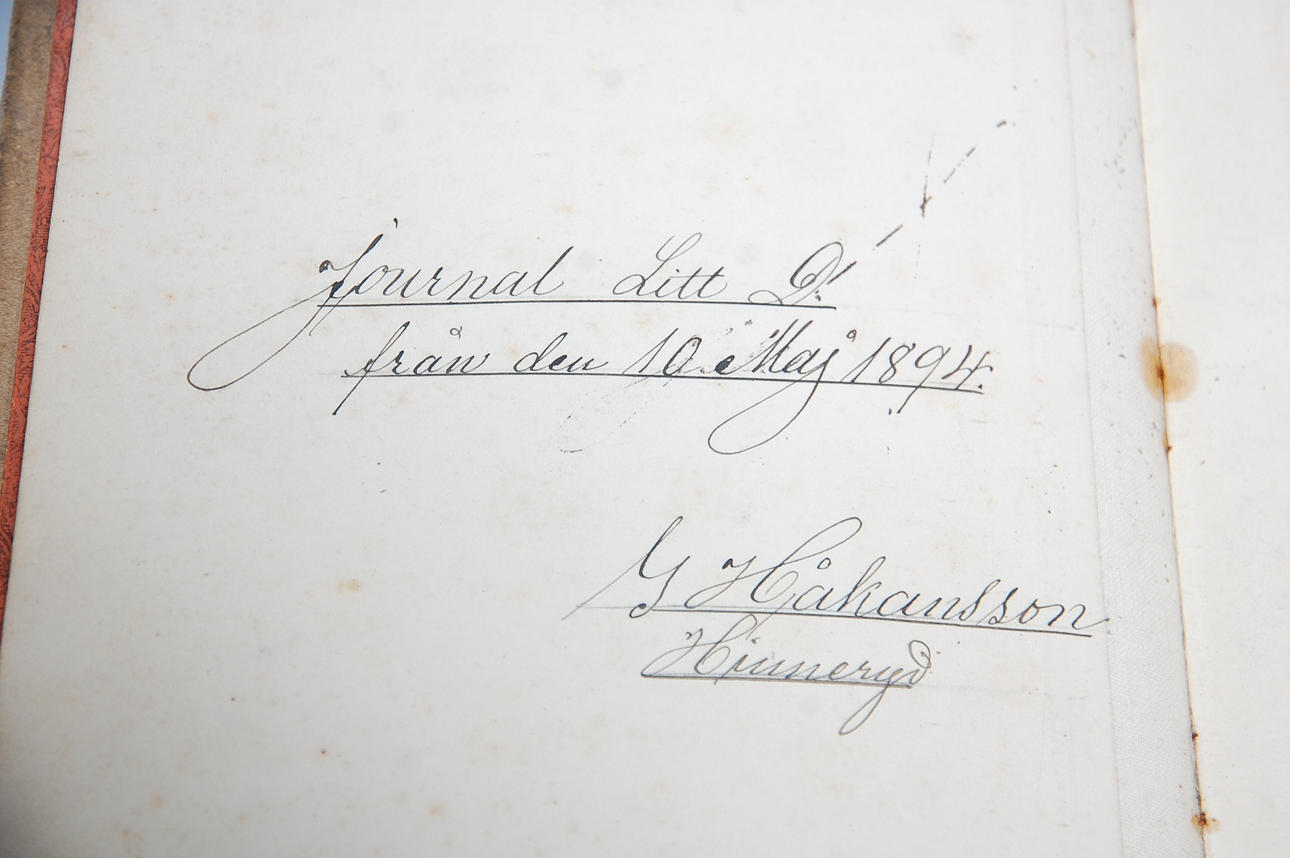 Journal Litt D.
från den 10 Maj 1894.
G Håkansson
Hinneryd